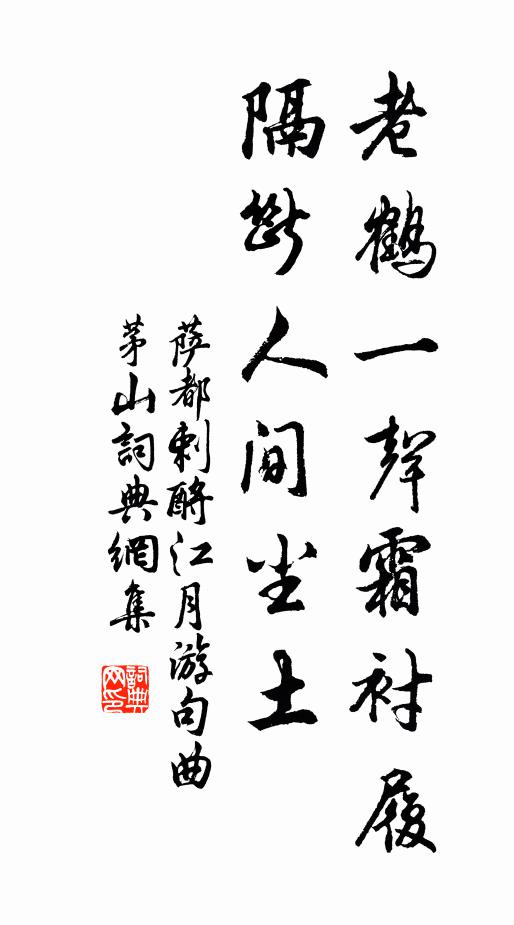 老鶴一聲霜衬履
隔斷人间尘土
萨都剌酹江月游句曲
茅山詞典網集
詞典网印